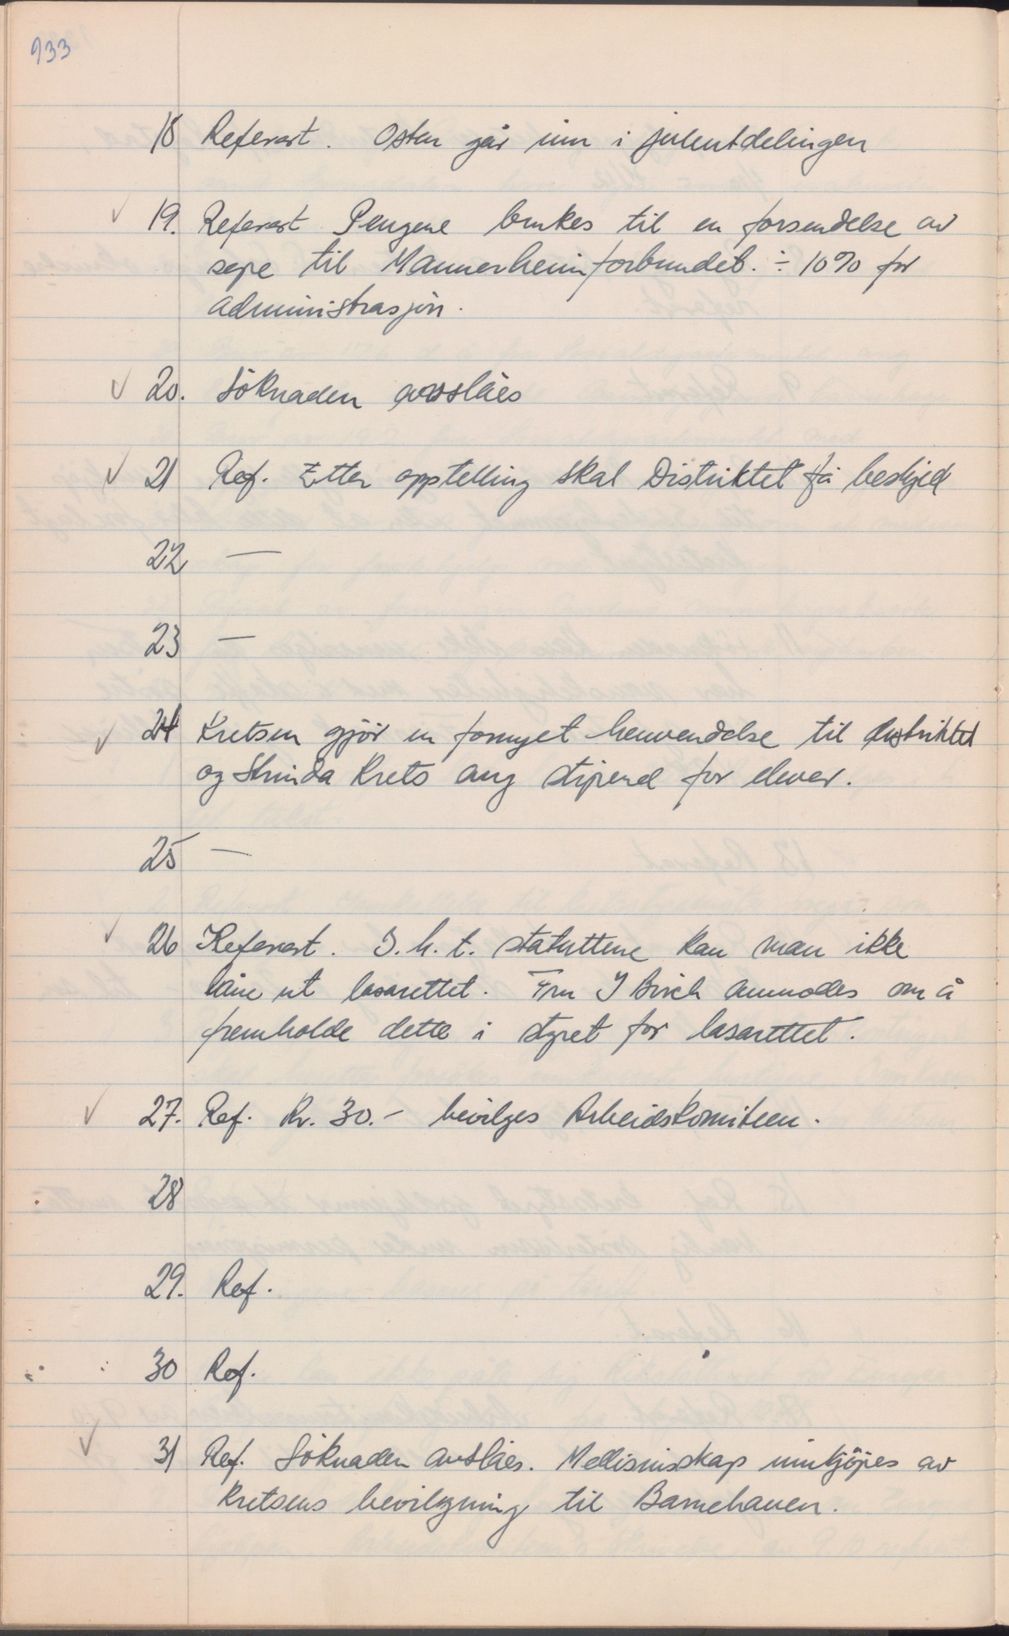 933
18 Referert. Osten går inn i juleutdelingen
19. Referert Pengene brukes til en forsendelse av
sepe til Mannerheimforbundet. ÷ 10% for
administrasjon.
20. Söknaden avslåes
21 Ref. Etter opptelling skal Distriktet få beskjed
22 —
23 —
24 Kretsen gjör en fornyet henvendelse til distriktet
og Strinda Krets ang stipend for elever.
25 —
26 Referert. I.h.t. statuttene kan man ikke
låne ut lasarettet. Fru I Birch anmodes om å
fremholde dette i styret for lasarettet.
27. Ref. Kr. 30.- bevilges Arbeidskomiteen.
28
29. Ref.
30 Ref.
31 Ref. Söknaden avslåes. Medisinskap innkjöpes av
Kretsens bevilgning til Barnehaven.